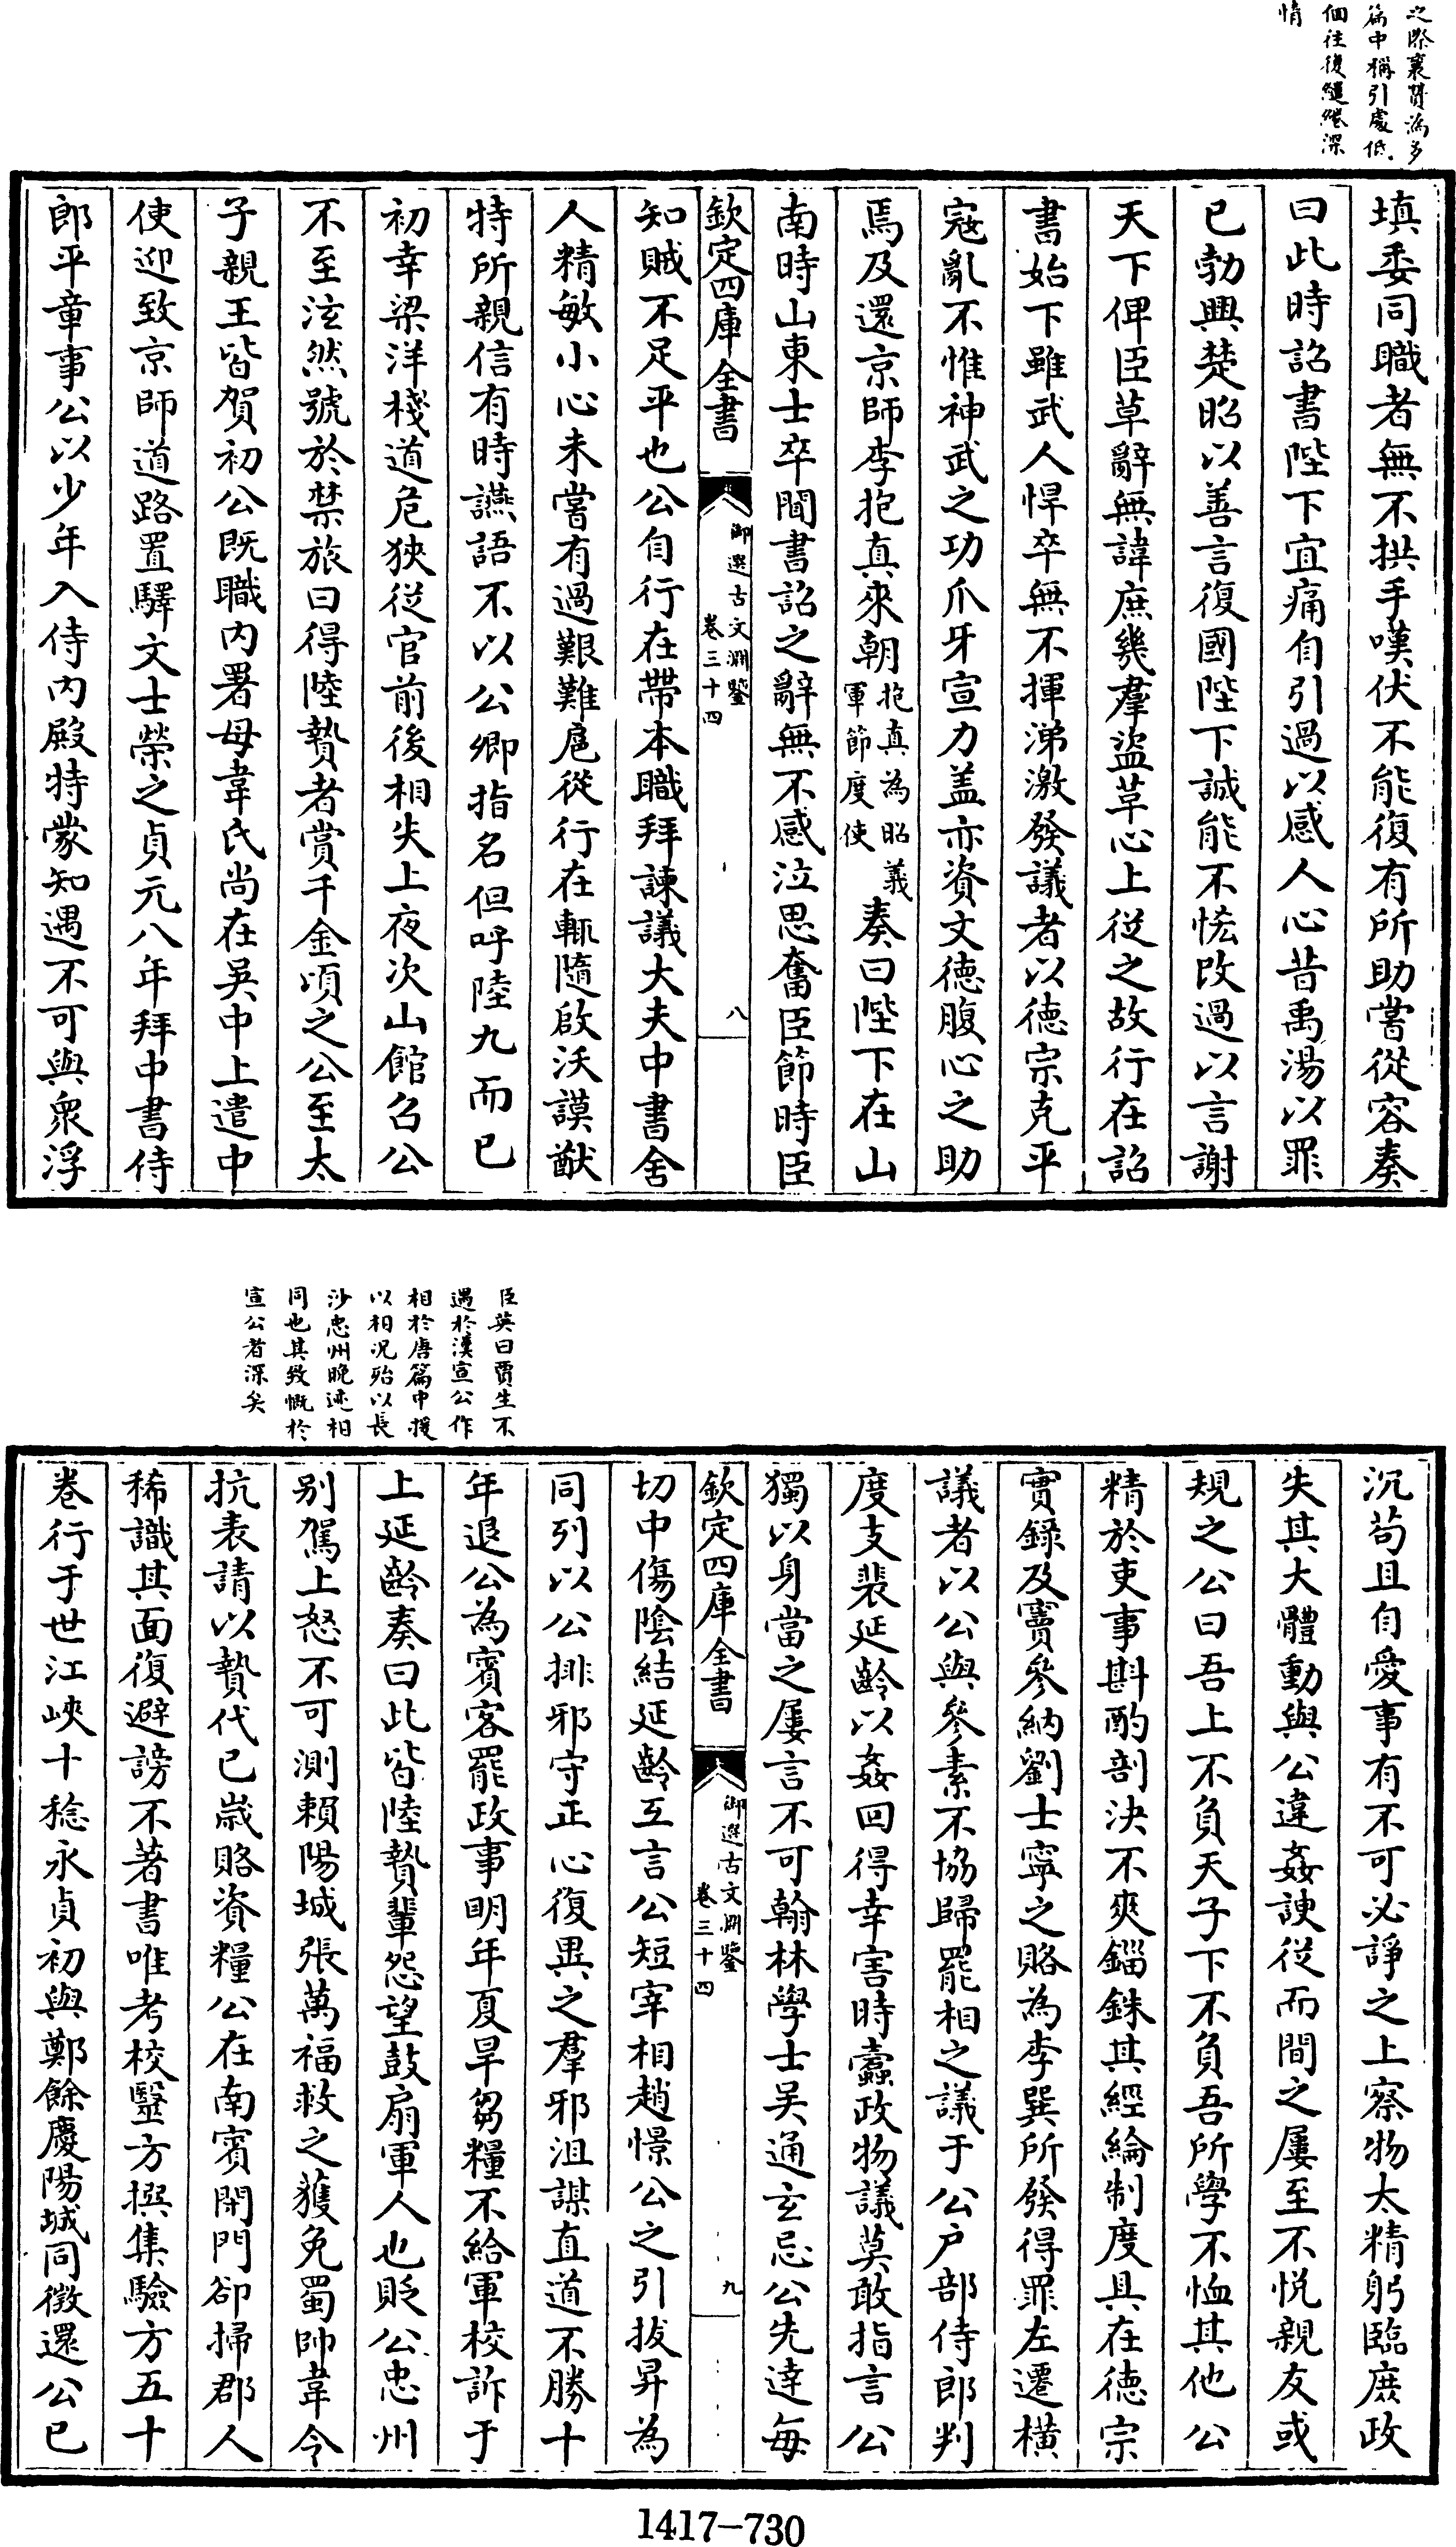 之際裒贊為多
篇中稱引處低
佪往復繾綣深
情
填委同職者無不拱手嘆伏不能復有所助嘗從容奏
曰此時詔書陛下宜痛自引過以感人心昔禹湯以罪
已勃興楚昭以善言復國陛下誠能不恡改過以言謝
天下俾臣草辭無諱庶幾羣盜革心上從之故行在詔
書始下雖武人悍卒無不揮涕激發議者以德宗克平
寇亂不惟神武之功爪牙宣力盖亦資文德腹心之助
焉及還京師李抱真來朝抱真為昭義軍節度使奏曰陛下在山
南時山東士卒聞書詔之辭無不感泣思奮臣節時臣
欽定四庫全書
御選古文淵鑒
卷三十四
八
知賊不足平也公自行在帶本職拜諫議大夫中書舍
人精敏小心未嘗有過艱難扈從行在輒隨啟沃謨猷
特所親信有時讌語不以公卿指名但呼陸九而已
初幸梁洋棧道危狹從官前後相失上夜次山館召公
不至泫然號於禁旅曰得陸贄者賞千金頃之公至太
子親王皆賀初公既職內署母韋氏尚在吳中上遣中
使迎致京師道路置驛文士榮之貞元八年拜中書侍
郎平章事公以少年入侍內殿特蒙知遇不可與衆浮
臣英曰賈生不
遇於漢宣公作
相於唐篇中援
以相況殆以長
沙忠州晚迹相
同也其致慨於
宣公者深矣
沉苟且自愛事有不可必諍之上察物太精躬臨庶政
失其大體動與公違姦諛從而間之屢至不悅親友或
規之公曰吾上不負天子下不負吾所學不恤其他公
精於吏事斟酌剖決不爽錙銖其經綸制度具在德宗
實錄及竇參納劉士寧之賂為李巽所發得罪左遷橫
議者以公與參素不協歸罷相之議于公戶部侍郎判
度支裴延齡以姦回得幸害時蠹政物議莫敢指言公
獨以身當之屢言不可翰林學士吳通玄忌公先達每
欽定四庫全書
御選古文淵鑒
卷三十四
九
切中傷陰結延齡互言公短宰相趙憬公之引拔昇為
同列以公排邪守正心復異之羣邪沮謀直道不勝十
年退公為賓客罷政事明年夏旱芻糧不給軍校訴于
上延齡奏曰此皆陸贄輩怨望鼓扇軍人也貶公忠州
別駕上怒不可測賴陽城張萬福救之獲免蜀帥韋令
抗表請以贄代已歲賂資糧公在南賓閉門卻掃郡人
稀識其面復避謗不著書唯考校醫方撰集驗方五十
卷行于世江峽十稔永貞初與鄭餘慶陽城同徵還公已
1417-730